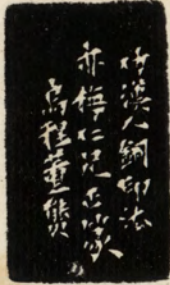 仿漢人銅印法
亦梅仁兄正篆
烏程董熊